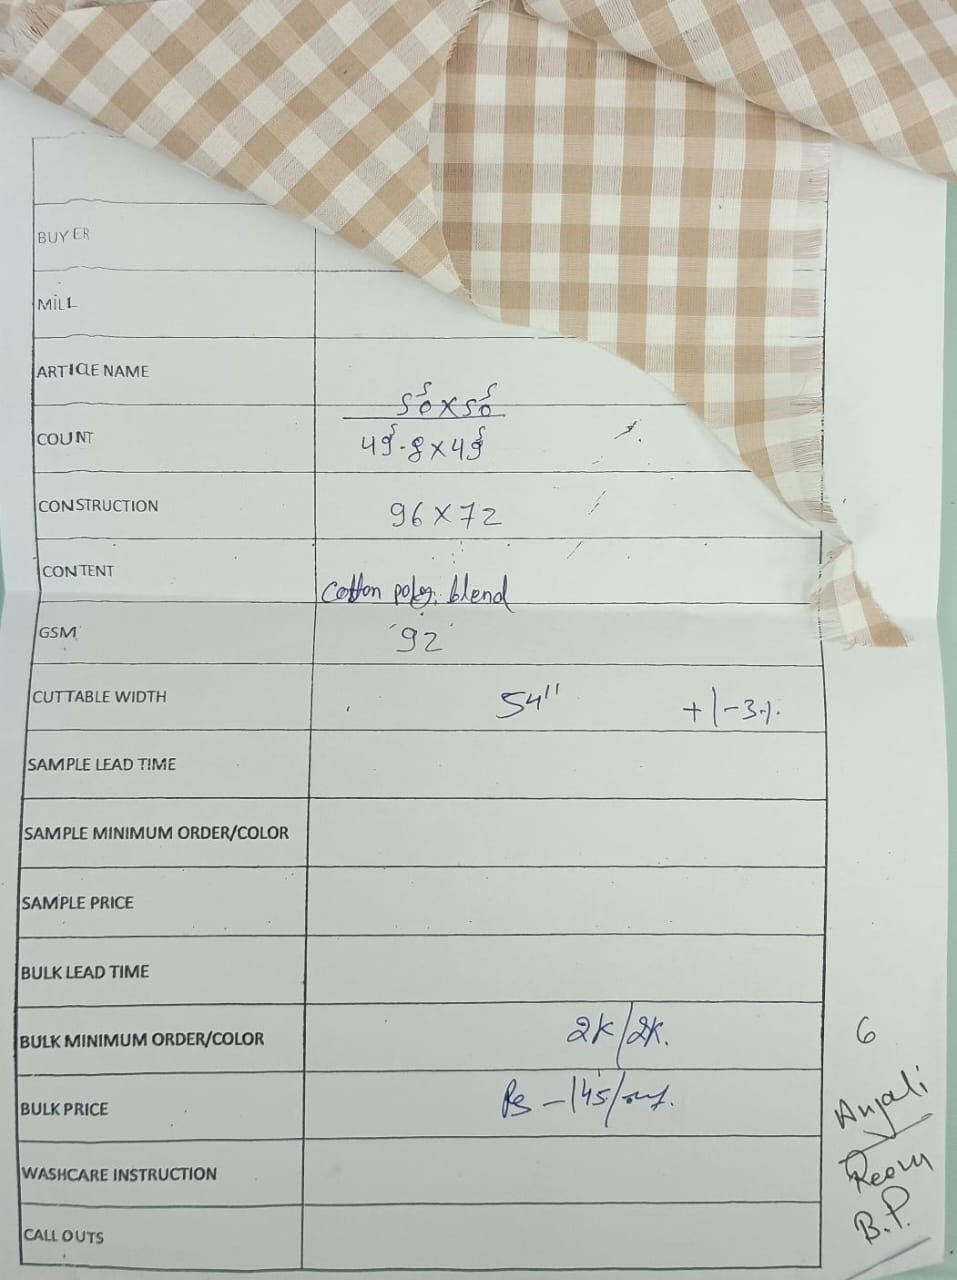 BUYER
MILL
ARTICLE NAME
COUNT 50s X 50s
49s-8 X 49s
CONSTRUCTION 96 X 72
CONTENT Cotton poly. blend
GSM 92
CUTTABLE WIDTH 54" +/-3%.
SAMPLE LEAD TIME
SAMPLE MINIMUM ORDER/COLOR
SAMPLE PRICE
BULK LEAD TIME
BULK MINIMUM ORDER/COLOR 2K/2K.
BULK PRICE Rs - 145/
WASHCARE INSTRUCTION
CALL OUTS
6
Anjali
B.P.